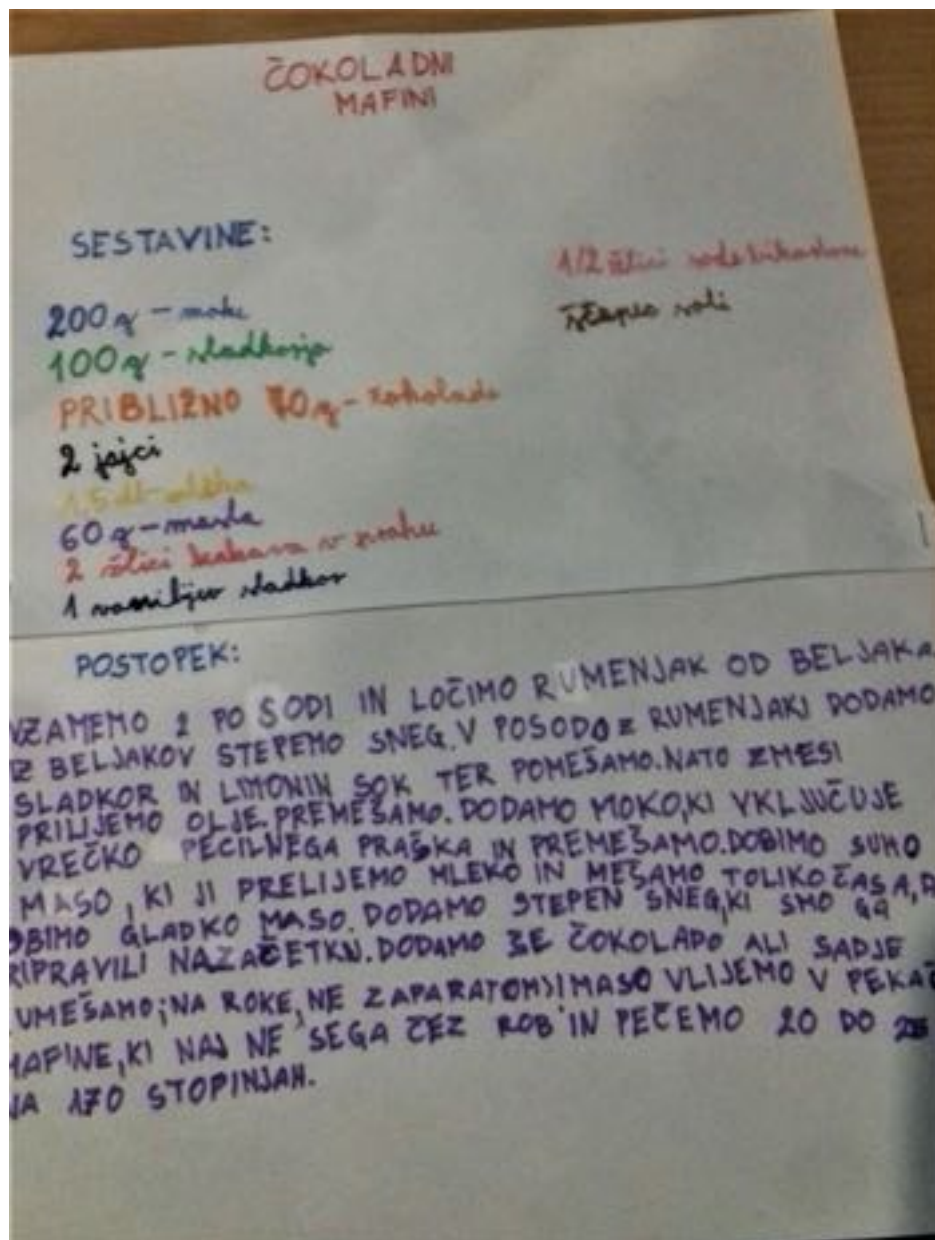 ČOKOLADNI
MAFINI
SESTAVINE:
200 g - moke
100 g - sladkorja
PRIBLIŽNO 70 g - čokolade
2 jajci
1,5 dl - mleka
60 g - masla
2 žlici kakava v prahu
1 vanilijev sladkor
1/2 žlici sode bikarbone
ščepec soli
POSTOPEK:
VZAMEMO 2 POSODI IN LOČIMO RUMENJAK OD BELJAKA.
IZ BELJAKOV STEPEMO SNEG. V POSODO Z RUMENJAKI DODAMO
SLADKOR IN LIMONIN SOK TER POMEŠAMO. NATO ZMESI
PRILIJEMO OLJE. PREMEŠAMO. DODAMO MOKO, KI VKLJUČUJE
VREČKO PECILNEGA PRAŠKA IN PREMEŠAMO. DOBIMO SUHO
MASO, KI JI PRELIJEMO MLEKO IN MEŠAMO TOLIKO ČASA, D
OBIMO GLADKO MASO. DODAMO STEPEN SNEG, KI SMO GA
RIPRAVILI NA ZAČETKU. DODAMO ŠE ČOKOLADO ALI SADJE
UMEŠAMO; NA ROKE, NE Z APARATOM; MASO VLIJEMO V PEKAČ
MAFINE, KI NAJ NE SEGA ČEZ ROB IN PEČEMO 20 DO
NA 170 STOPINJAH.